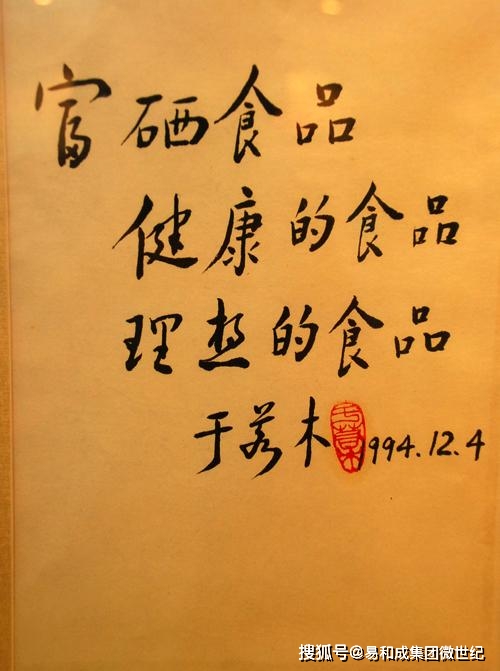 富硒食品
健康的食品
理想的食品
于若木 1994.12.4
于若木
搜狐号@易和成集团微世纪